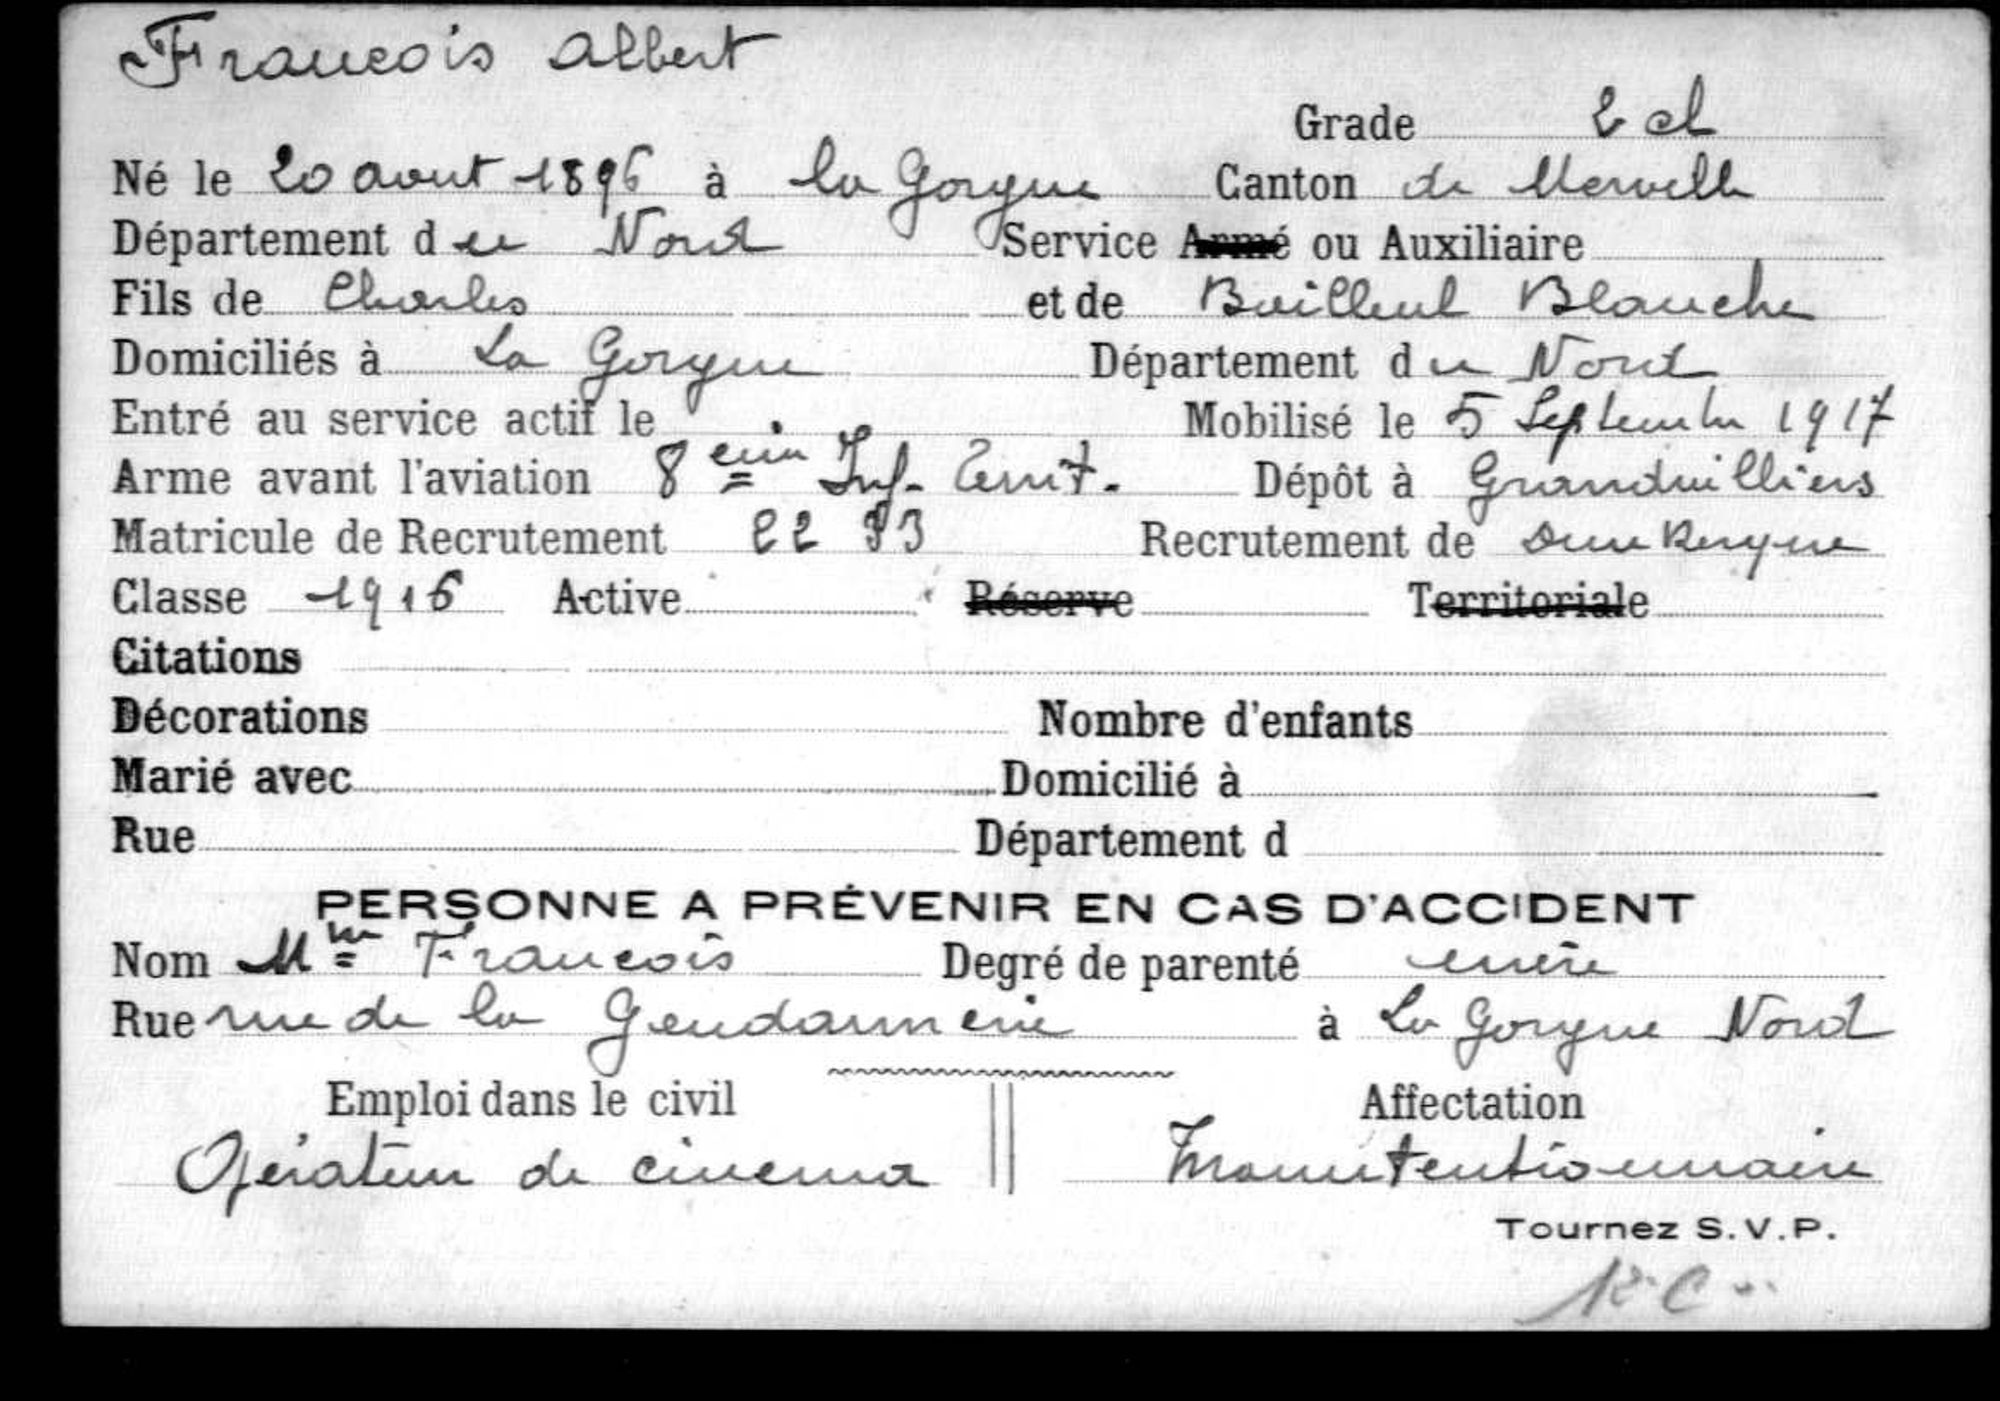 Francois Albert
Grade 2 cl
Né le 20 aout 1896 à la Gorgue Canton de Merville
Département du Nord Service Armé ou Auxiliaire
Fils de Charles et de Bailleul Blanche
Domiciliés à La Gorgue Département du Nord
Entré au service actif le Mobilisé le 5 Septembre 1917
Arme avant l'aviation 8 eme Inf. Territ. Dépôt à Grandvilliers
Matricule de Recrutement 22 93 Recrutement de Dunkerque
Classe 1916 Active Réserve Territoriale
Citations
Décorations Nombre d'enfants
Marié avec Domicilié à
Rue Département d
PERSONNE A PRÉVENIR EN CAS D'ACCIDENT
Nom Mme Francois Degré de parenté mère
Rue rue de la Gendarmerie à La Gorgue Nord
Emploi dans le civil Affectation
Opérateur de cinema Manutentionnaire
Tournez S.V.P.